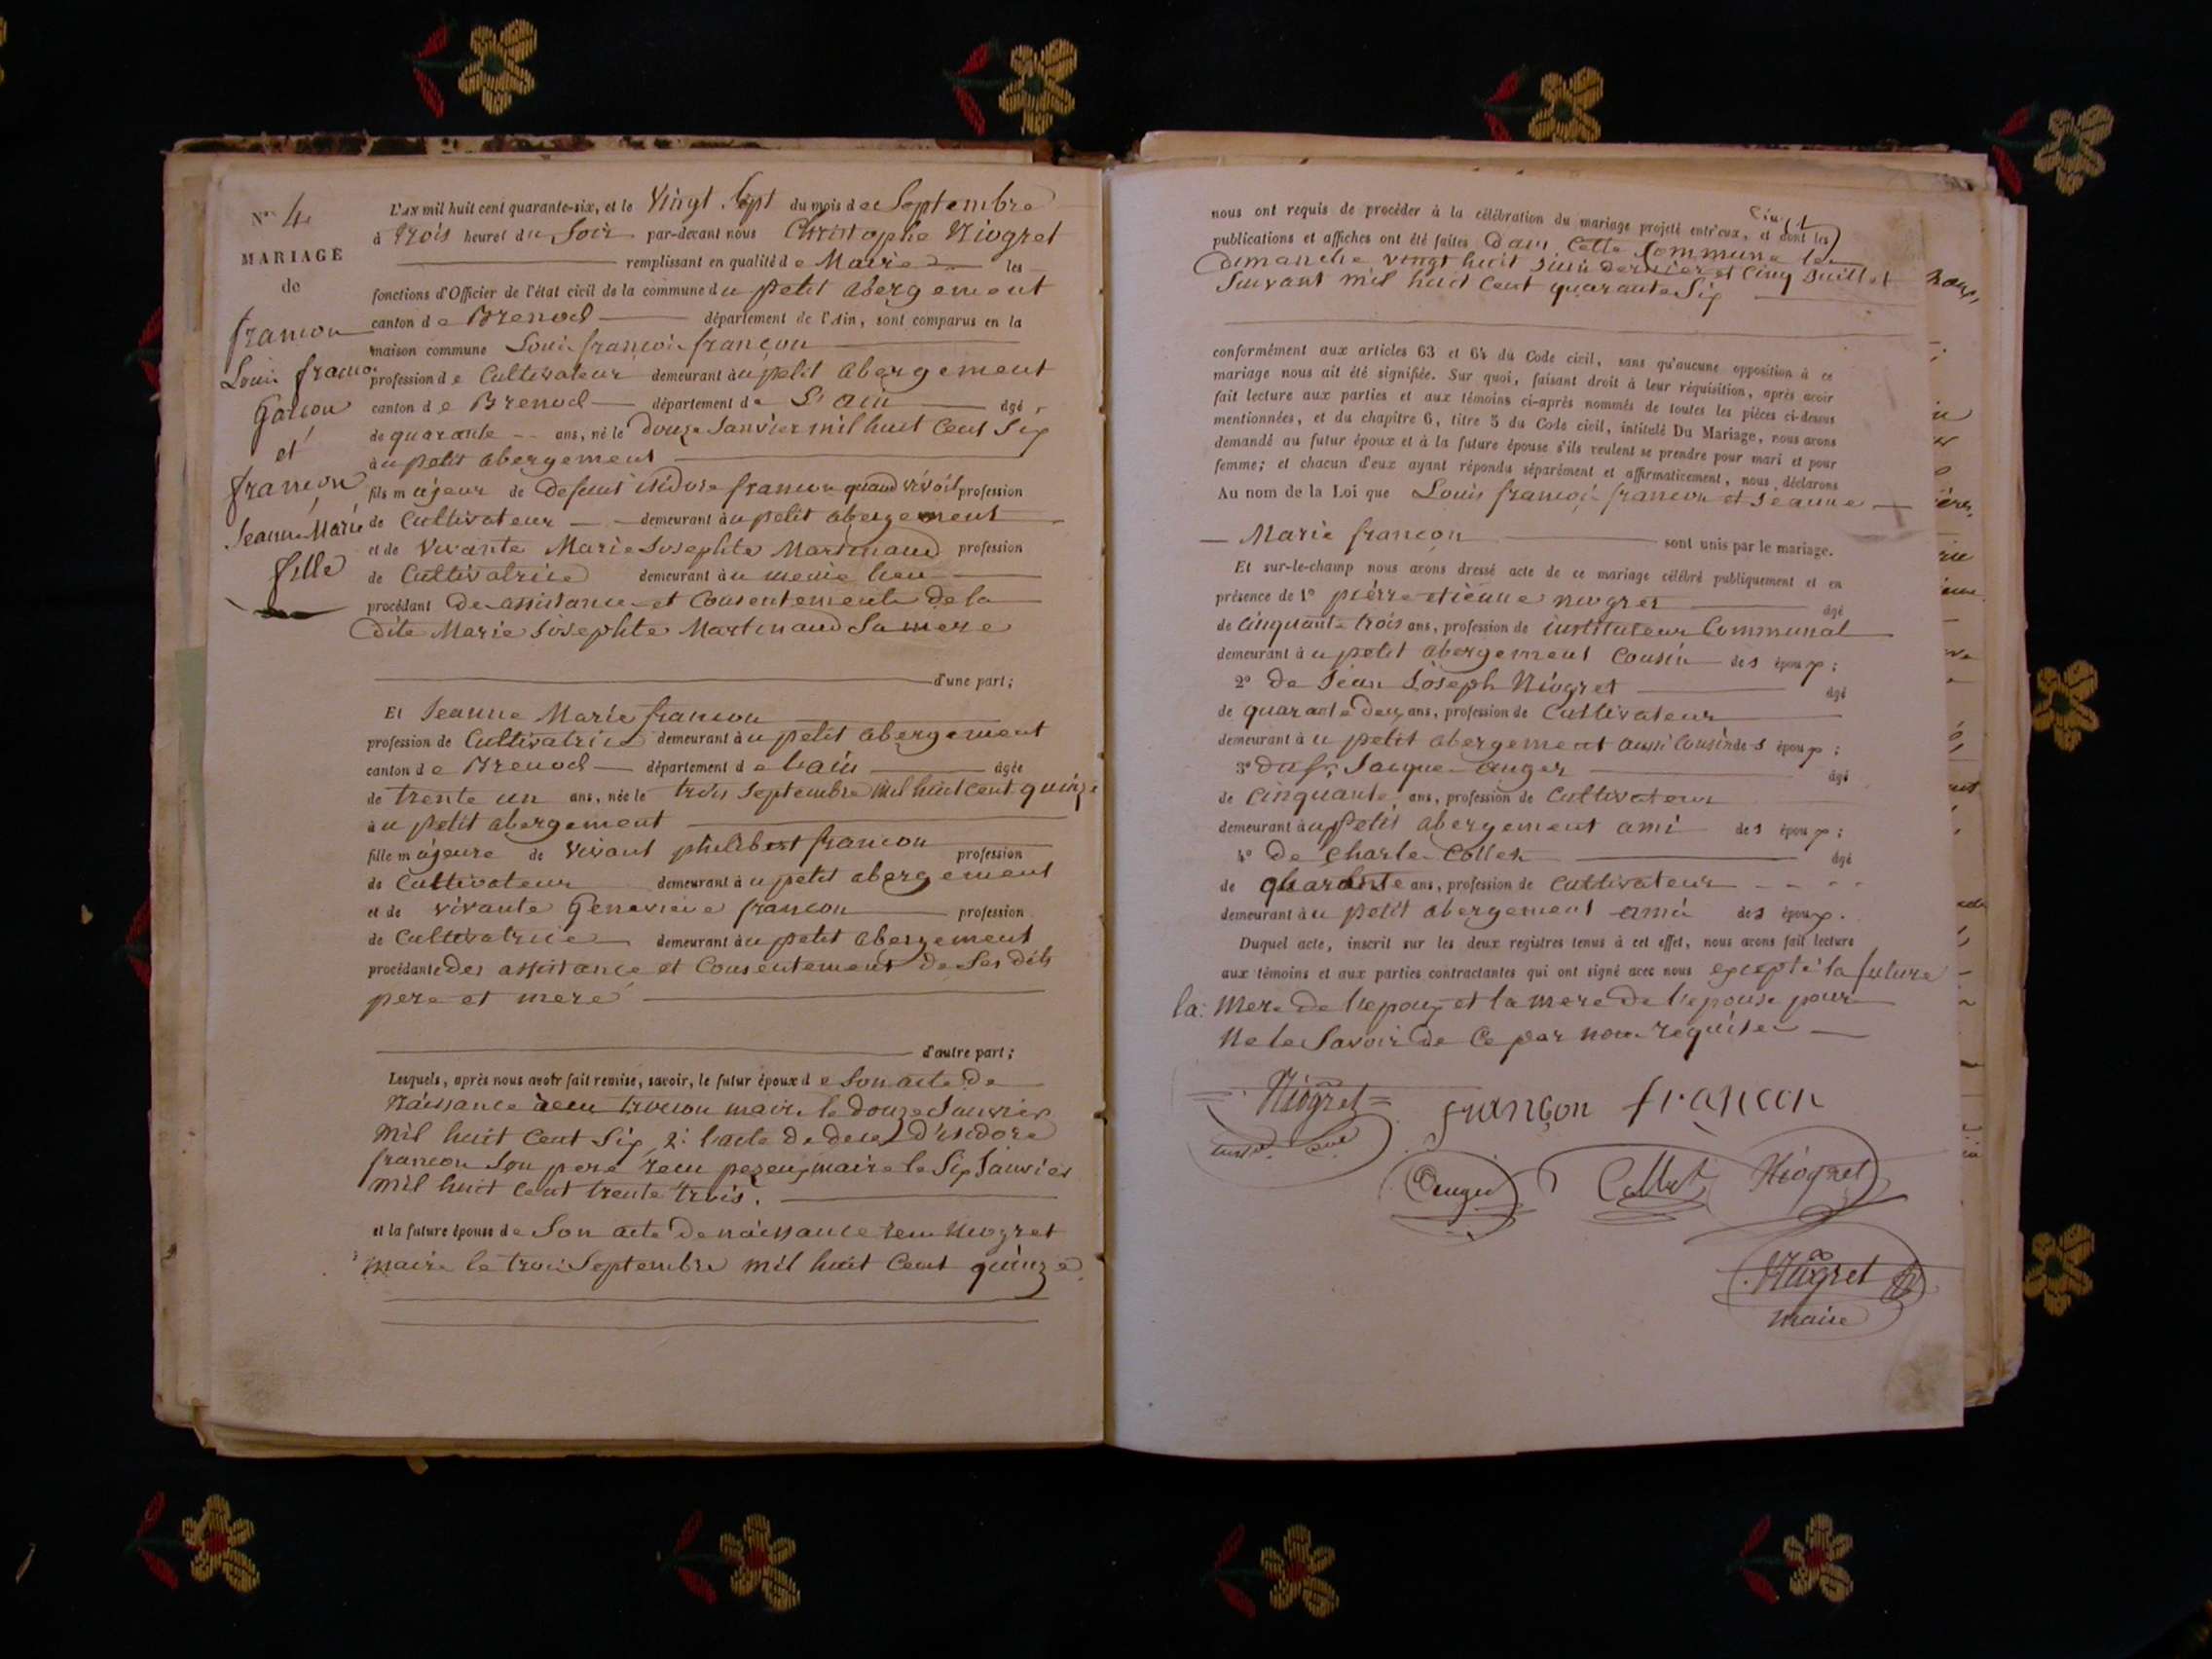 N° 4
MARIAGE
de
françon
Louis franço.
Garçon
et
françon
Jeanne Marie
fille
L'AN mil huit cent quarante-six, et le Vingt Sept du mois de Septembre
à trois heures du Soir par-devant nous Christophe Niogret
remplissant en qualité de Maire les
fonctions d'Officier de l'état civil de la commune du petit abergement
canton de Brenod département de l'Ain, sont comparus en la
maison commune Louis françois françon
profession de Cultivateur demeurant au petit abergement
canton de Brenod département de L'ain âgé
de quarante ans, né le douze Janvier mil huit Cent Six
au petit abergement
fils majeur de defunt isidore françon quand vivoit profession
de Cultivateur demeurant au petit abergement
et de Vivante Marie Josephte Martinand profession
de Cultivatrice demeurant au meme lieu
procédant De assistance et Consentement de la
dite Marie Josephte Martinand Sa mere
d'une part;
Et Jeanne Marie françon
profession de Cultivatrice demeurant au petit abergement
canton de Brenod département de l'ain âgée
de trente un ans, née le trois Septembre Mil huit Cent quinze
au petit abergement
fille majeure de Vivant philibert françon profession
de Cultivateur demeurant au petit abergement
et de vivante Genevieve françon profession
de Cultivatrice demeurant au petit abergement
procédante des assistance et Consentement de Ses dits
pere et mere
d'autre part;
Lesquels, après nous avoir fait remise, savoir, le futur époux de Son acte De
Naissance maire le douze Janvier
Mil huit Cent Six, 2: l'acte de deces d'isidore
françon Son pere recu maire le Six Janvier
mil huit Cent trente trois.
et la future épouse de Son acte De naissance recu Niogret
maire le trois Septembre mil huit Cent quinze
nous ont requis de procéder à la célébration du mariage projeté entr'eux, et dont les
publications et affiches ont été faites Dans Cette Commune les
dimanche vingt huit Juin dernier et Cinq Juillet
Suivant mil huit Cent quarante Six
conformément aux articles 63 et 64 du Code civil, sans qu'aucune opposition à ce
mariage nous ait été signifiée. Sur quoi, faisant droit à leur réquisition, après avoir
fait lecture aux parties et aux témoins ci-après nommés de toutes les pièces ci-dessus
mentionnées, et du chapitre 6, titre 5 du Code civil, intitulé Du Mariage, nous avons
demandé au futur époux et à la future épouse s'ils veulent se prendre pour mari et pour
femme; et chacun d'eux ayant répondu séparément et affirmativement, nous déclarons
Au nom de la Loi que Louis françois françon et Jeanne
Marie françon sont unis par le mariage.
Et sur-le-champ nous avons dressé acte de ce mariage célébré publiquement et en
présence de 1° pierre etienne niogret âgé
de Cinquante trois ans, profession de instituteur Communal
demeurant au petit abergement Cousin des époux;
2° De Jean Joseph Niogret âgé
de quarante deux ans, profession de Cultivateur
demeurant au petit abergement aussi Cousin des époux;
3° Jacque auger âgé
de Cinquante ans, profession de Cultivateur
demeurant au petit abergement ami des époux;
4° De Charle Collet âgé
de quarante ans, profession de Cultivateur
demeurant au petit abergement ami des époux.
Duquel acte, inscrit sur les deux registres tenus à cet effet, nous avons fait lecture
aux témoins et aux parties contractantes qui ont signé avec nous excepté la future
la: Mere de l'epoux et la mere de l'epouse pour
Ne le Savoir de Ce par nous requises
Niogret
françon françon
Collet Niogret
Niogret
maire